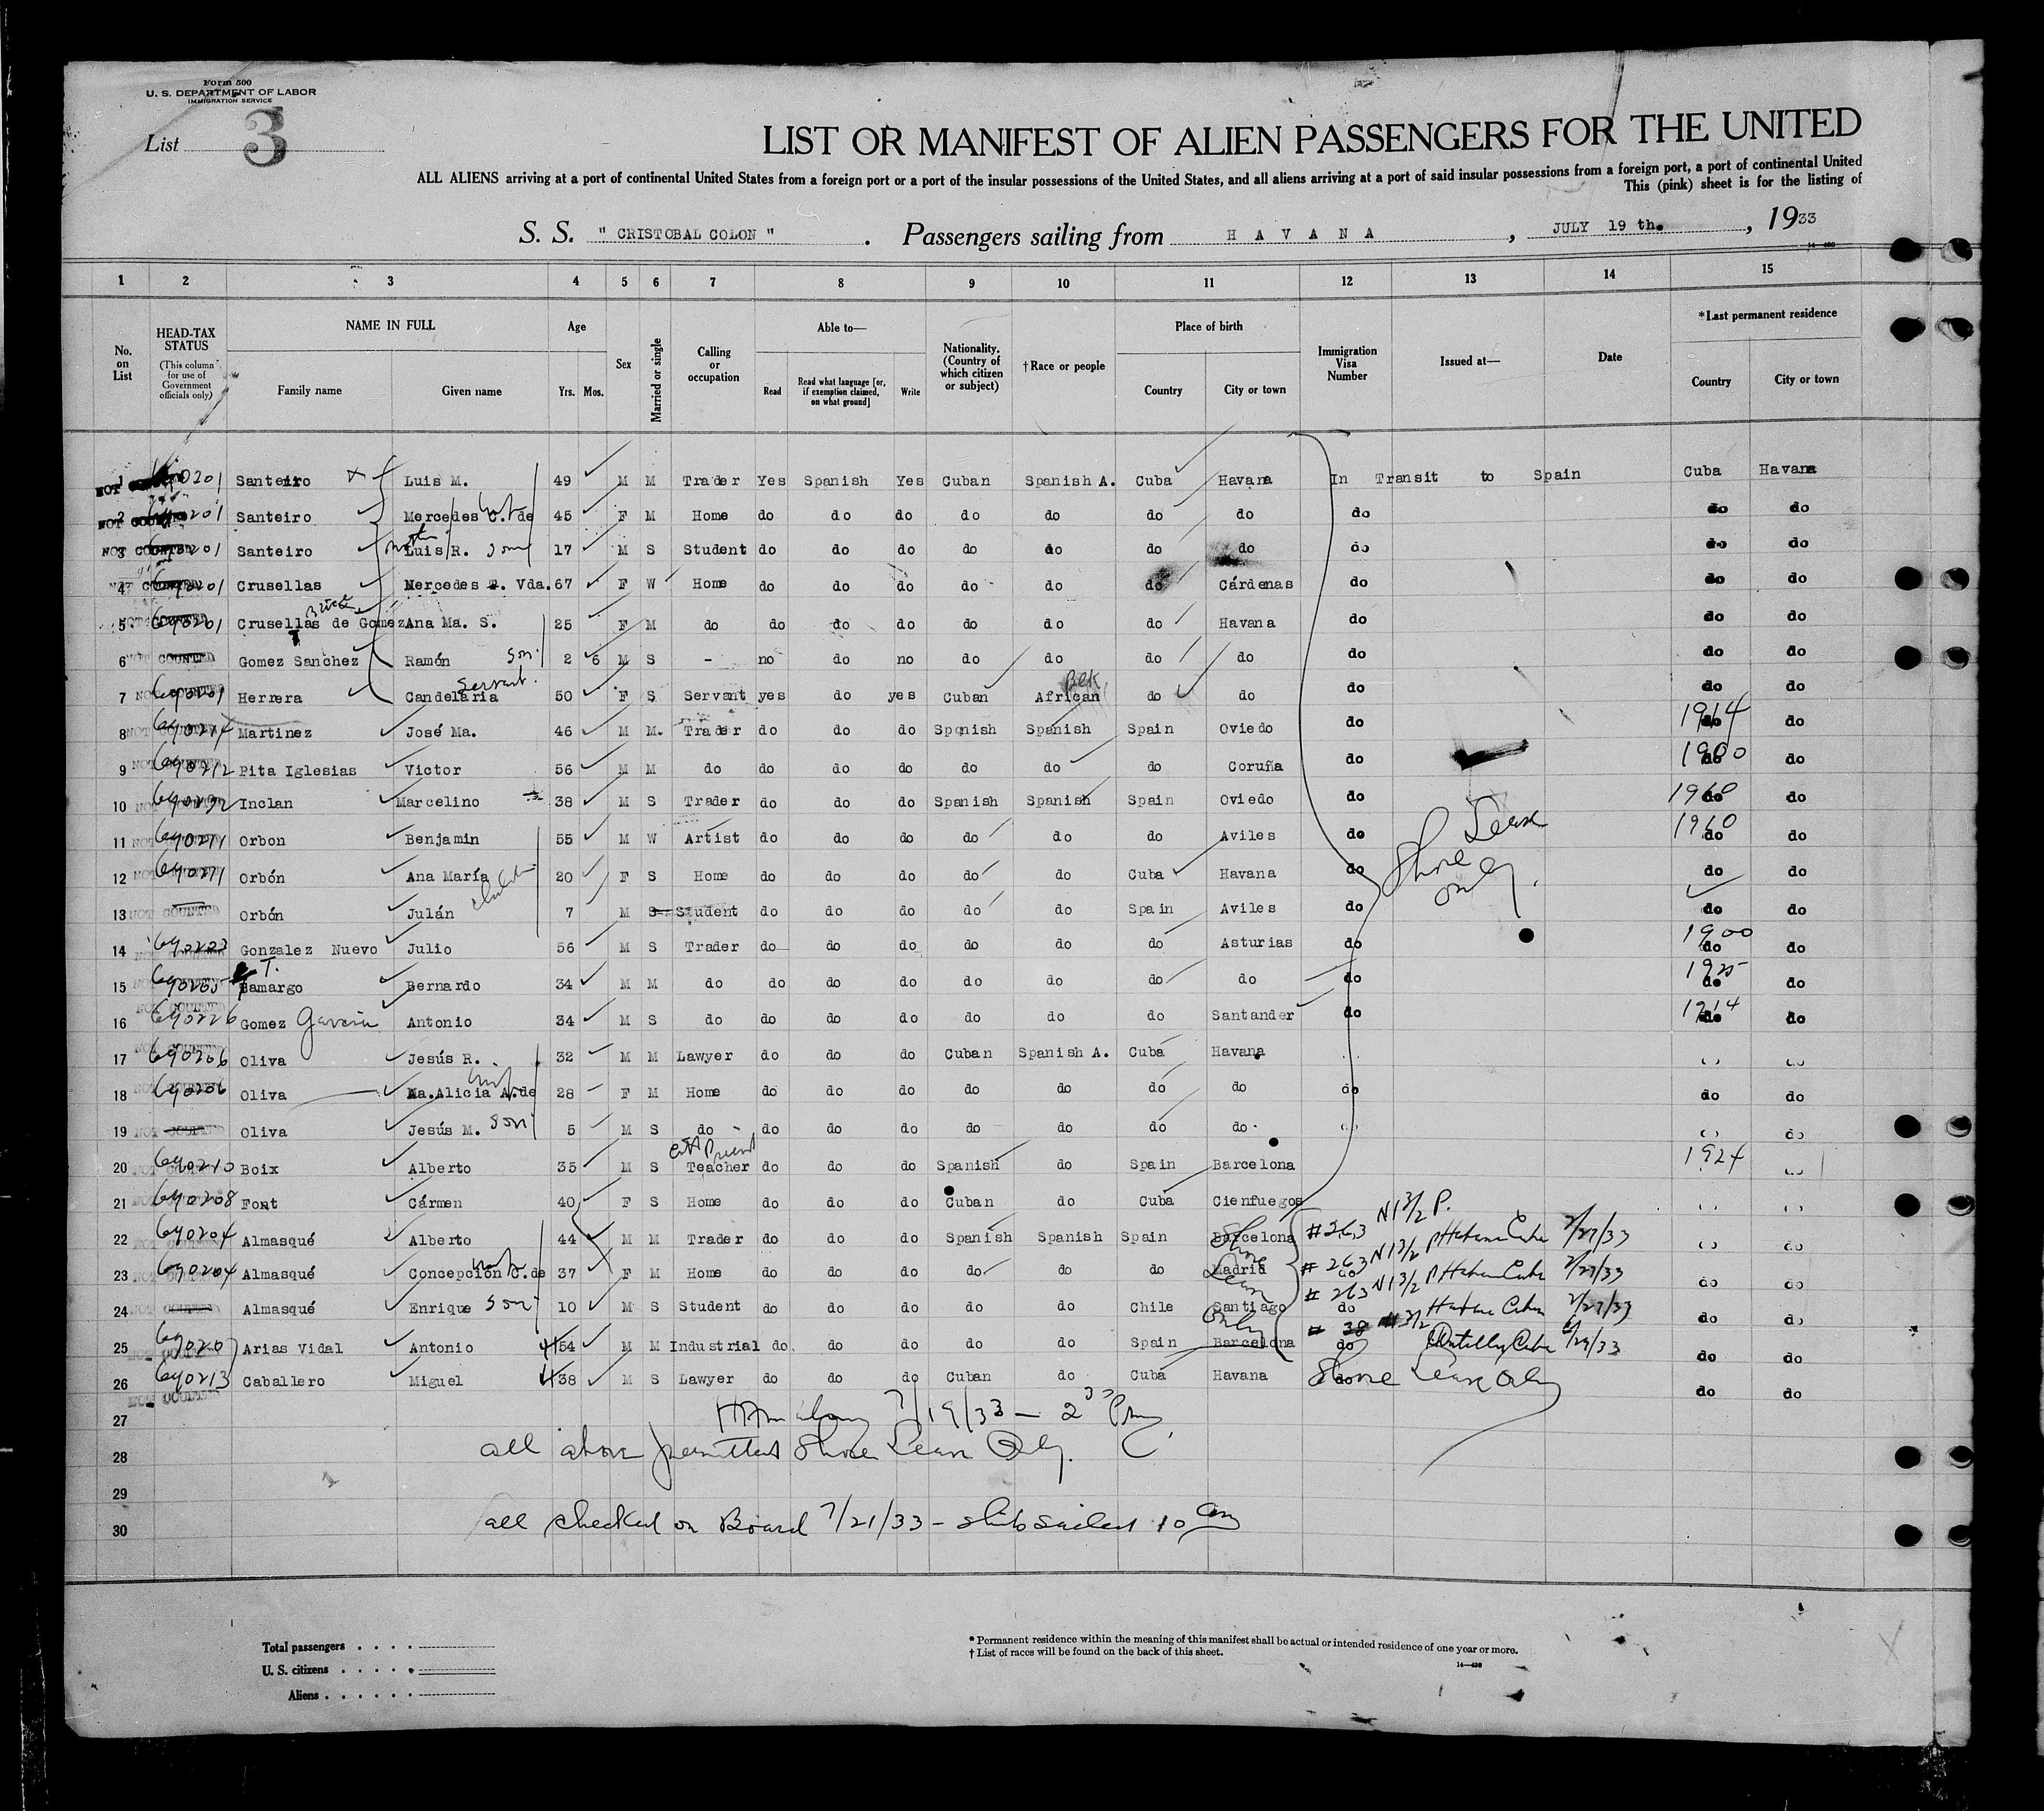 Form 500
U. S. DEPARTMENT OF LABOR
IMMIGRATION SERVICE
List 3
LIST OR MANIFEST OF ALIEN PASSENGERS FOR THE UNITED
ALL ALIENS arriving at a port of continental United States from a foreign port or a port of the insular possessions of the United States, and all aliens arriving at a port of said insular possessions from a foreign port, a port of continental United
This (pink) sheet is for the listing of
S. S. " CRISTOBAL COLON " . Passengers sailing from H A V A N A , JULY 19 th. , 1933
1 2 3 4 5 6 7 8 9 10 11 12 13 14 15
No. on List
HEAD-TAX STATUS
(This column for use of Government officials only)
NAME IN FULL
Family name Given name
Age
Yrs. Mos.
Sex
Married or single
Calling or occupation
Able to—
Read
Read what language [or, if exemption claimed, on what ground]
Write
Nationality. (Country of which citizen or subject)
†Race or people
Place of birth
Country City or town
Immigration Visa Number
Issued at—
Date
*Last permanent residence
Country City or town
1 Santeiro Luis M. 49 M M Trader Yes Spanish Yes Cuban Spanish A. Cuba Havana In Transit to Spain Cuba Havana
2 690201 Santeiro Mercedes C. de 45 F M Home do do do do do do do do do do
3 Santeiro Luis R. son 17 M S Student do do do do do do do do do do
4 Crusellas Mercedes Vda. 67 F W Home do do do do do do Cárdenas do do do
5 Crusellas de Gomez Ana Ma. S. 25 F M do do do do do do do Havana do do do
6 NOT COUNTED Gomez Sanchez Ramón son 2 6 M S - no do no do do do do do do do
7 690201 Herrera Candelaria Servant 50 F S Servant yes do yes Cuban African Blk do do do do do
8 690214 Martinez José Ma. 46 M M. Trader do do do Spanish Spanish Spain Oviedo do 1914 do do
9 690212 Pita Iglesias Victor 56 M M do do do do do do do Coruña do 1900 do do
10 Inclan Marcelino 38 M S Trader do do do Spanish Spanish Spain Oviedo do do do
11 690211 Orbon Benjamin 55 M W Artist do do do do do do Aviles do do do
12 690211 Orbón Ana María 20 F S Home do do do do do Cuba Havana do do do
13 NOT COUNTED Orbón Julán 7 M S Student do do do do do Spain Aviles do do do
14 Gonzalez Nuevo Julio 56 M S Trader do do do do do do Asturias do 1900 do do
15 690205 Bamargo T. Bernardo 34 M M do do do do do do do do do 1925 do do
16 690226 Gomez Garcia Antonio 34 M S do do do do do do do Santander do 1914 do do
17 690206 Oliva Jesús R. 32 M M Lawyer do do do Cuban Spanish A. Cuba Havana
18 690206 Oliva Ma. Alicia A. de wife 28 F M Home do do do do do do do do do do
19 NOT COUNTED Oliva Jesús M. son 5 M S do do do do do do do do
20 690210 Boix Alberto 35 M S Teacher do do do Spanish do Spain Barcelona 1924
21 690208 Font Cármen 40 F S Home do do do Cuban do Cuba Cienfuegos
22 690204 Almasqué Alberto 44 M M Trader do do do Spanish Spanish Spain Barcelona #263 N1 3/2 P.
23 690204 Almasqué Concepción C. de 37 F M Home do do do do do do Madrid # 263 N1 3/2 P Habana Cuba do do
24 Almasqué Enrique son 10 M S Student do do do do do Chile Santiago do # 263 N1 3/2 P Habana Cuba do do
25 Arias Vidal Antonio 54 M M Industrial do do do do do Spain Barcelona do do do
26 690213 Caballero Miguel 38 M S Lawyer do do do Cuban do Cuba Havana do Shore Leave Only do do
Shore Leave only.
Shore Leave only
27 7/19/33 — 2 30 Pm
28 all above permitted Shore Leave Only.
29
30 all checked on Board 7/21/33 - ship sailed 10 am
Total passengers
U. S. citizens
Aliens
* Permanent residence within the meaning of this manifest shall be actual or intended residence of one year or more.
† List of races will be found on the back of this sheet.